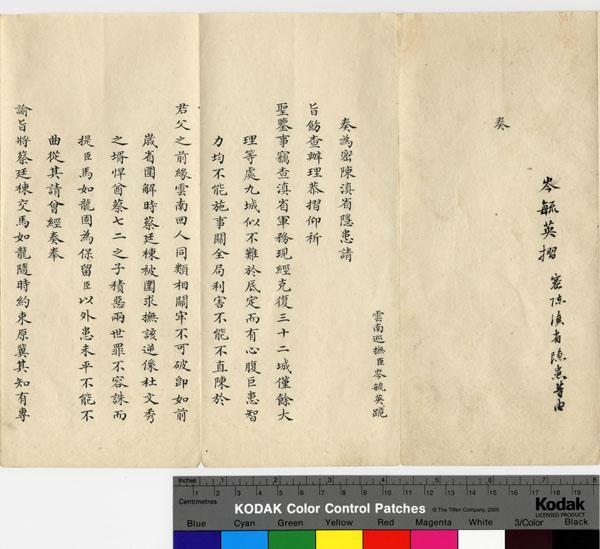 奏
岑毓英摺 密陳滇省隱患等由
雲南巡撫臣岑毓英跪
奏為密陳滇省隱患請
旨飭查辦理恭摺仰祈
聖鑒事竊查滇省軍務現經克復三十二城僅餘大
理等處九城似不難於底定而有心腹巨患智
力均不能施事關全局利害不能不直陳於
君父之前緣雲南回人同類相關牢不可破卽如前
歲省圍解時蔡廷棟被圍求撫該逆係杜文秀
之壻悍酋蔡七二之子積惡兩世罪不容誅而
提臣馬如龍固為保留臣以外患未平不能不
曲從其請曾經奏奉
諭旨將蔡廷棟交馬如龍隨時約束原冀其知有專
Inches 1 2 3 4 5 6 7 8
Centimetres 1 2 3 4 5 6 7 8 9 10 11 12 13 14 15 16 17 18 19
KODAK Color Control Patches © The Tiffen Company, 2000 Kodak
LICENSED PRODUCT
Blue Cyan Green Yellow Red Magenta White 3/Color Black